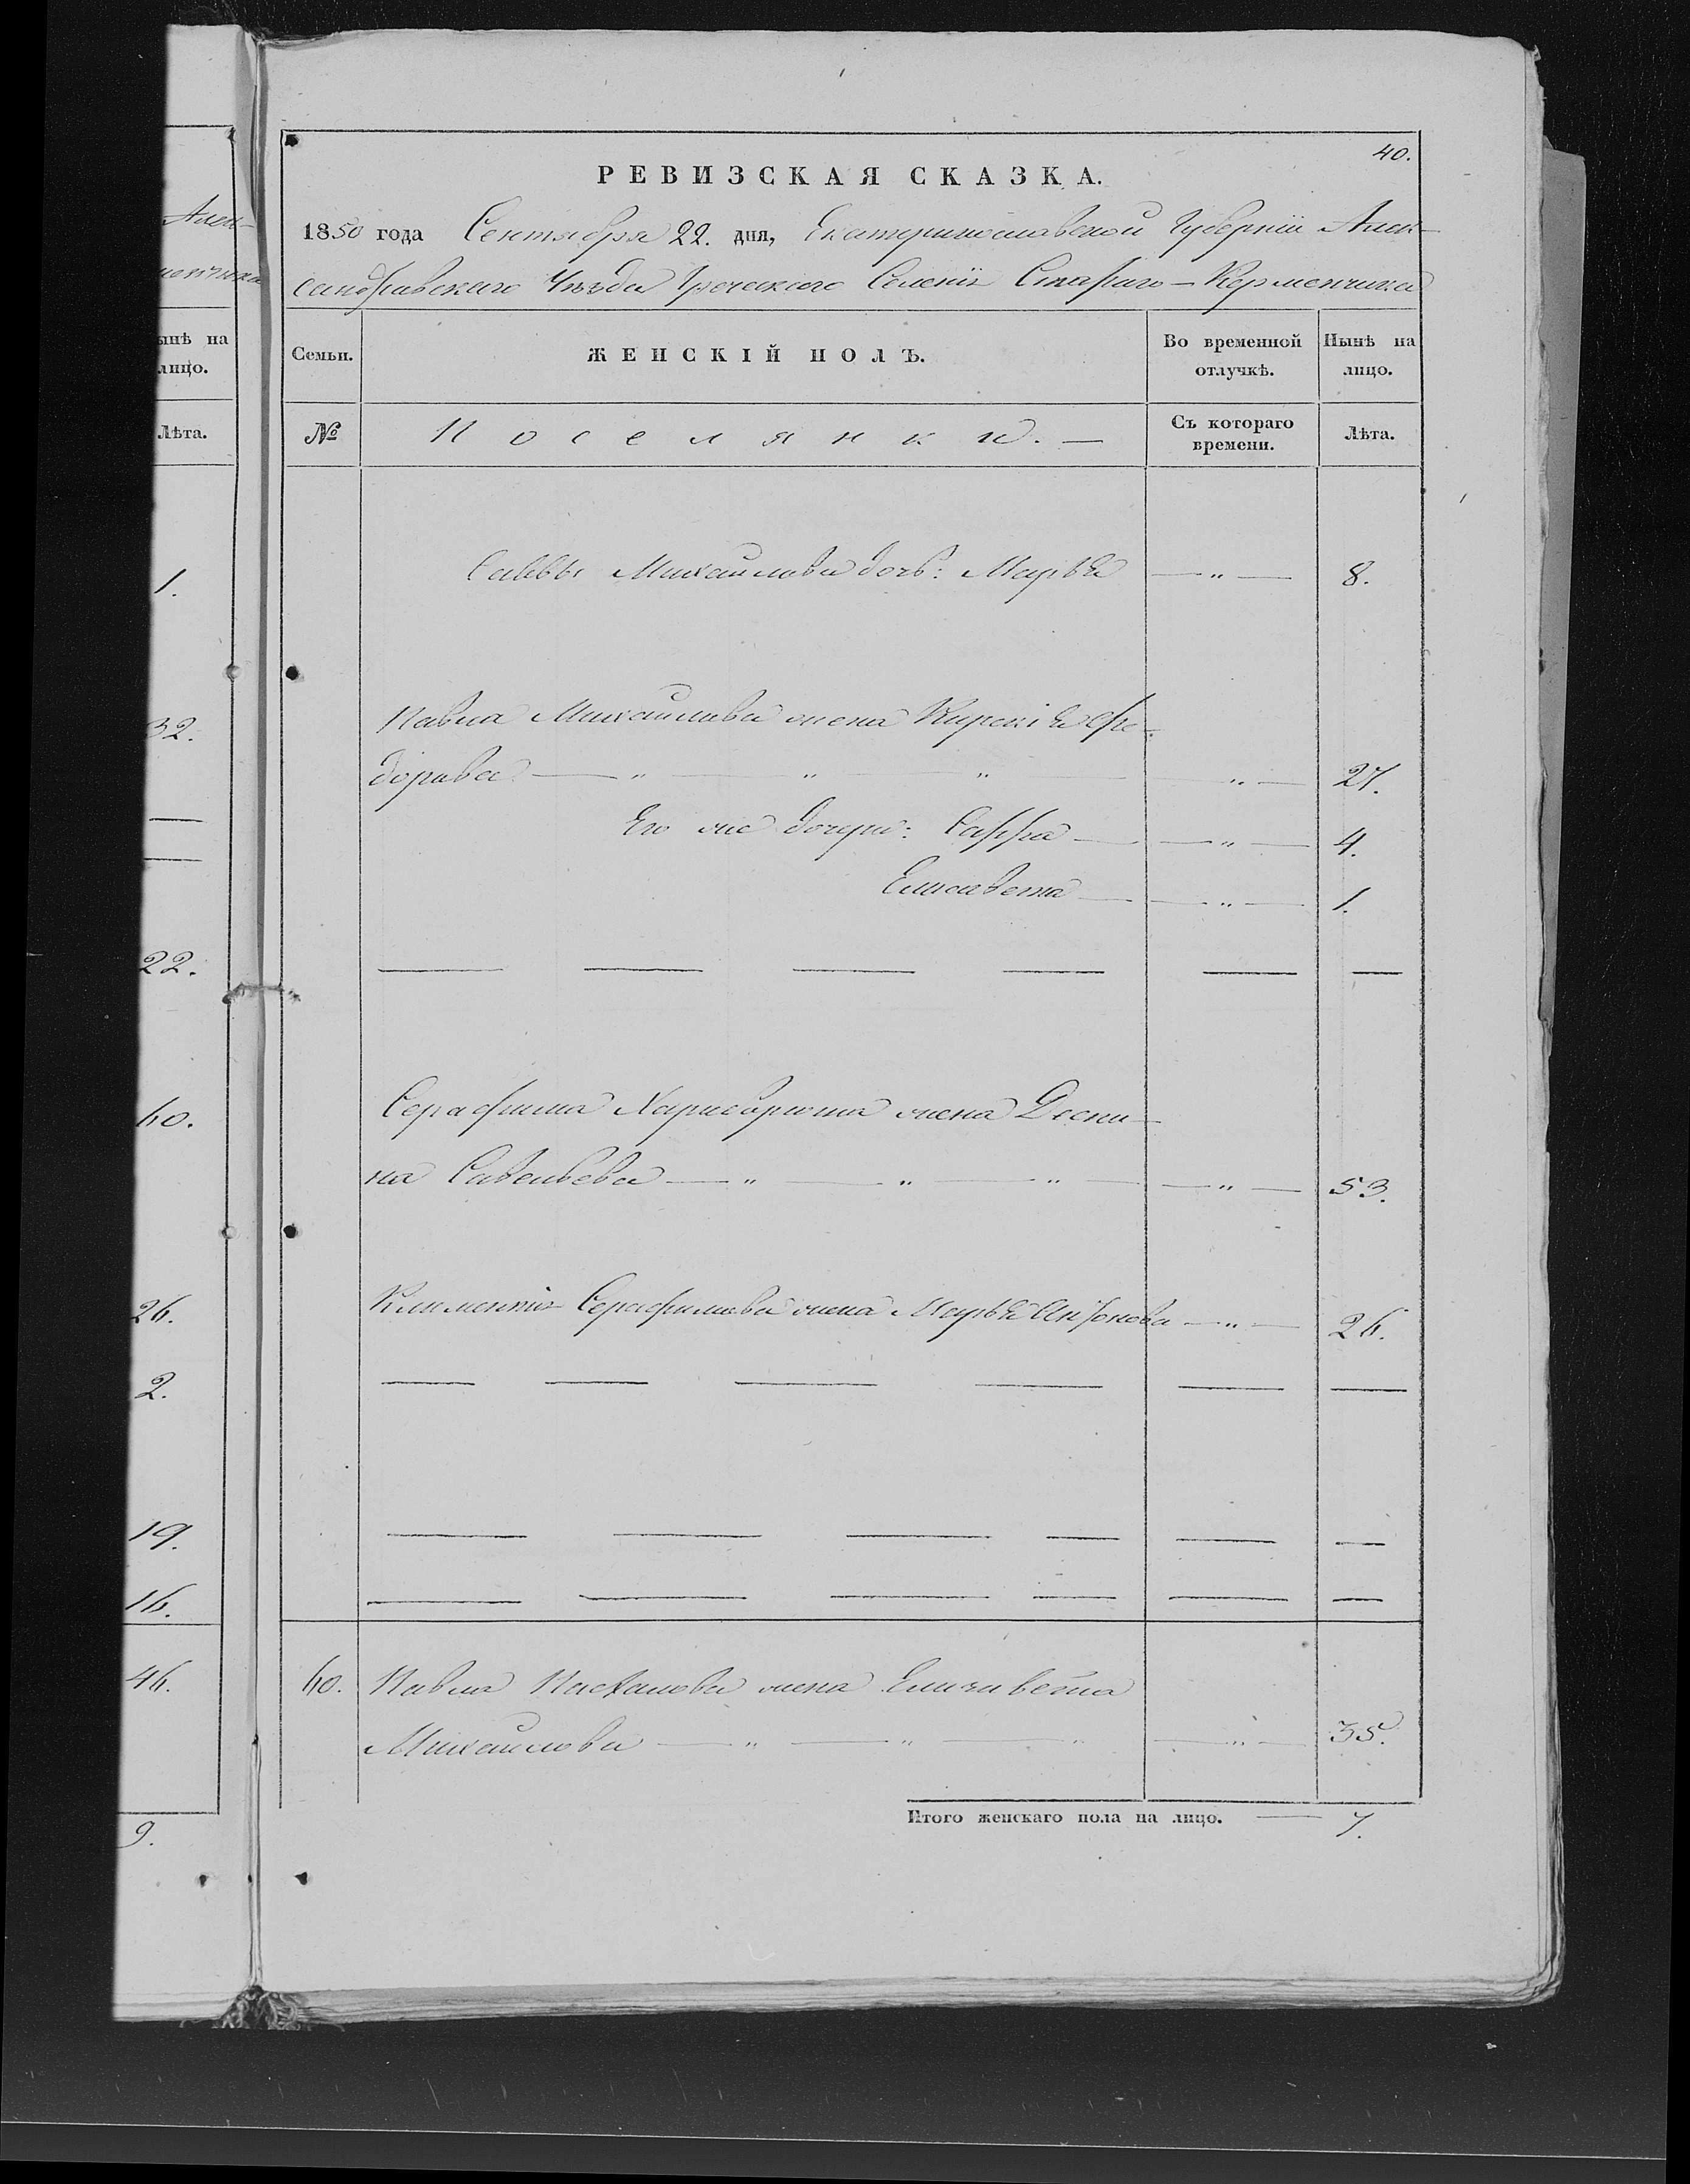 40.
РЕВИЗСКАЯ СКАЗКА.
1850 года Сентября 22. дня, Екатеринославской Губерніи Алек-
сандровскаго Уѣзда Греческаго Селенія Стараго-Керменчика
Семьи. ЖЕНСКІЙ ПОЛЪ. Во временной отлучкѣ. Нынѣ на лицо.
№ Поселянки. — Съ котораго времени. Лѣта.
Саввы Михайлова дочь: Марья — " — 8.
Павла Михайлова жена Кирекія Фе-
дорова — " " " " — 27.
Его же дочери: Сарра — — " — 4.
Елисавета — — " — 1.
Серафима жена Деспи-
на Савельева — " — " — " — — " — 53.
Климентія Серафимова жена Марья Антонова — " — 26.
60. Павла Пасхалова жена Елизавета
Михайлова — " — " — " — " — 35.
Итого женскаго пола на лицо. — 7.
Алек-
менчика
ынѣ на
лицо.
Лѣта.
1.
32.
22.
60.
26.
2.
19.
16.
46.
9.